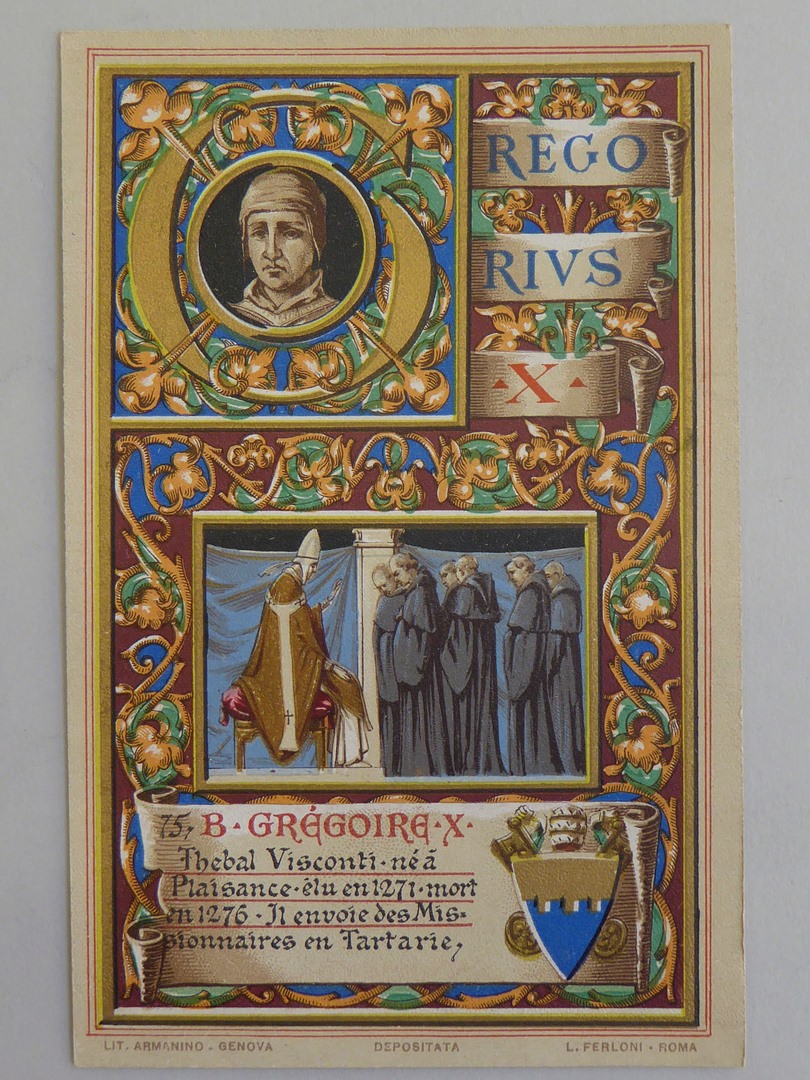 G
REGO
RIVS
·X·
75, B · GRÉGOIRE · X ·
Thebal Visconti · né à
Plaisance · élu en 1271 · mort
en 1276 · Il envoie des Mis=
sionnaires en Tartarie,
LIT. ARMANINO - GENOVA
DEPOSITATA
L. FERLONI - ROMA